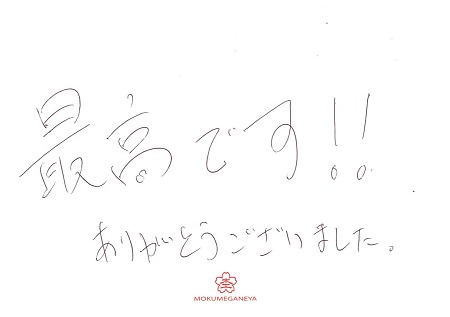 最高です!!
ありがとうございました。
MOKUMEGANEYA